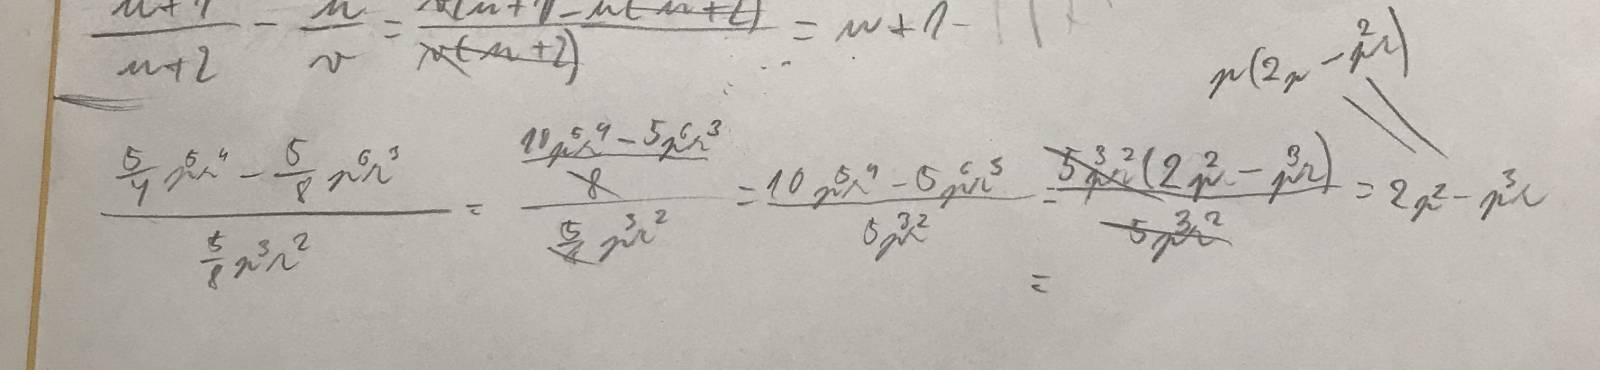 (u+1)/(u+2) - u/v = (v(u+1) - u(u+2))/(v(u+2)) = u+1-
p(2p - p²r)
(5/4 p⁵r⁴ - 5/8 p⁶r³)/(5/8 p³r²) = ((10p⁵r⁴ - 5p⁶r³)/8)/(5/8 p³r²) = (10p⁵r⁴ - 5p⁶r³)/(5p³r²) = (5p³r²(2p²r - p³r))/(5p³r²) = 2p² - p³r
=